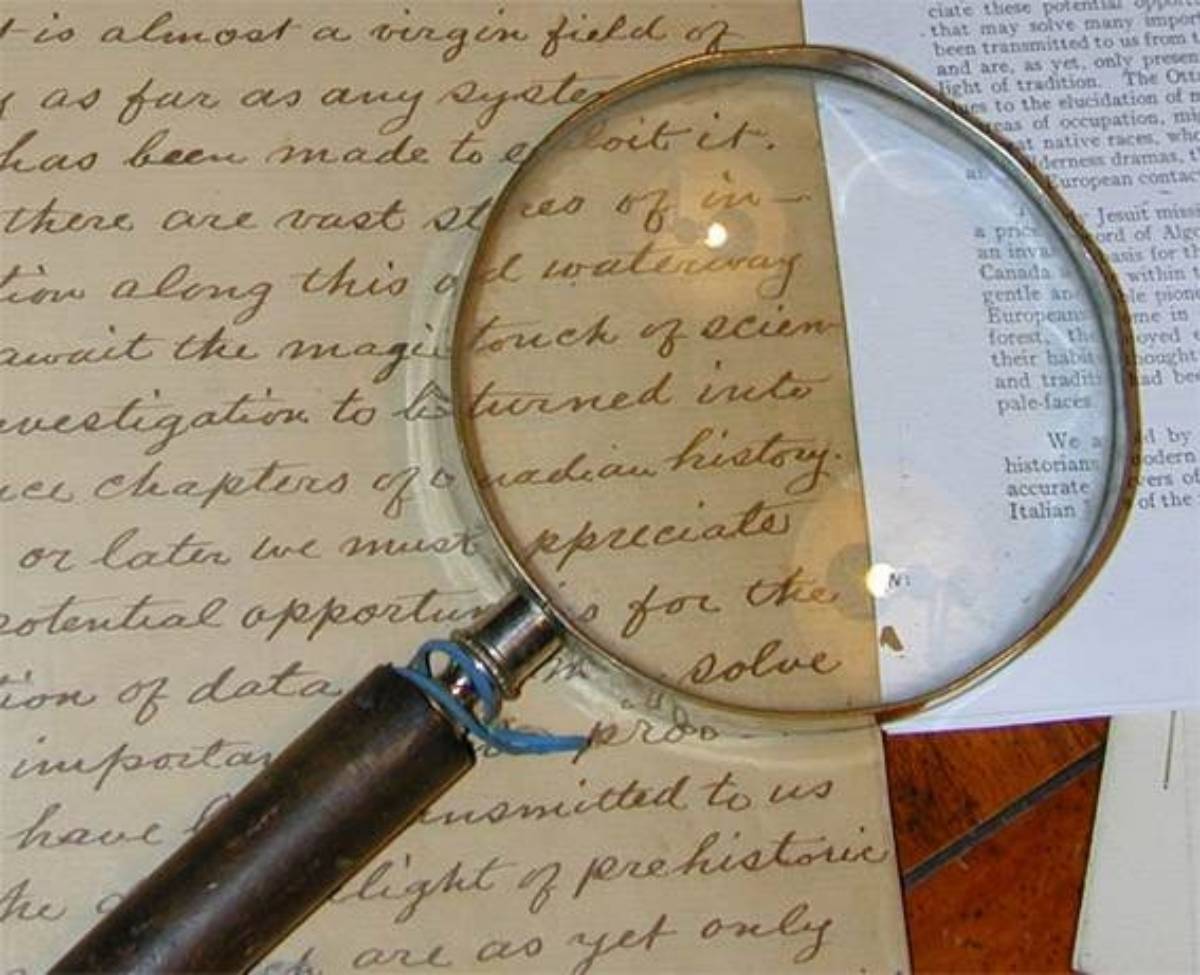 t is almost a virgin field of
as far as any system
has been made to exploit it.
there are vast stores of in-
tion along this old waterway
await the magic touch of scien-
vestigation to be turned into
nce chapters of Canadian history.
or later we must appreciate
potential opportunities for the
tion of data
solve
importan
prob
have transmitted to us
he light of prehistoric
are as yet only
ciate these potential opport
that may solve many impor
been transmitted to us from
and are, as yet, only presen
light of tradition. The Ott
to the elucidation of
areas of occupation, mi
native races, wh
wilderness dramas, t
European contac
Jesuit miss
a price ord of Algo
an inva asis for th
Canada within
gentle an le pion
Europeans me in
forest, the oyed
their habits thought
and traditi had bee
pale-faces
We a d by
historians modern
accurate vers of
Italian of the